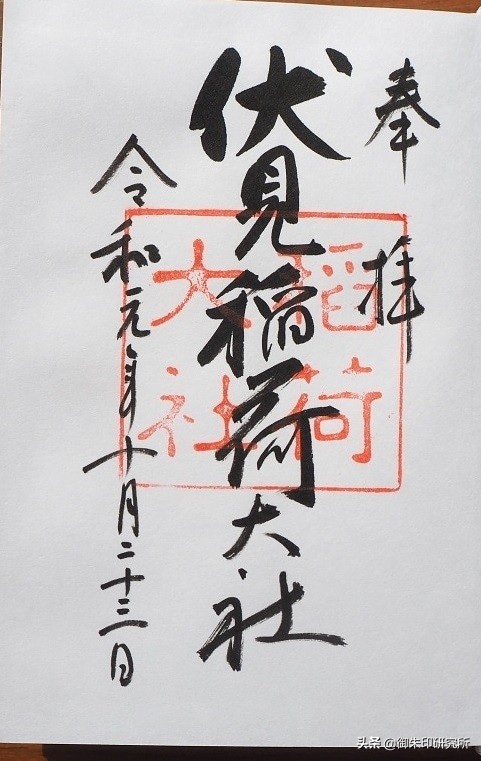 奉拝
伏見稲荷大社
稲荷
大社
令和元年十月二十三日
头条 @御朱印研究所